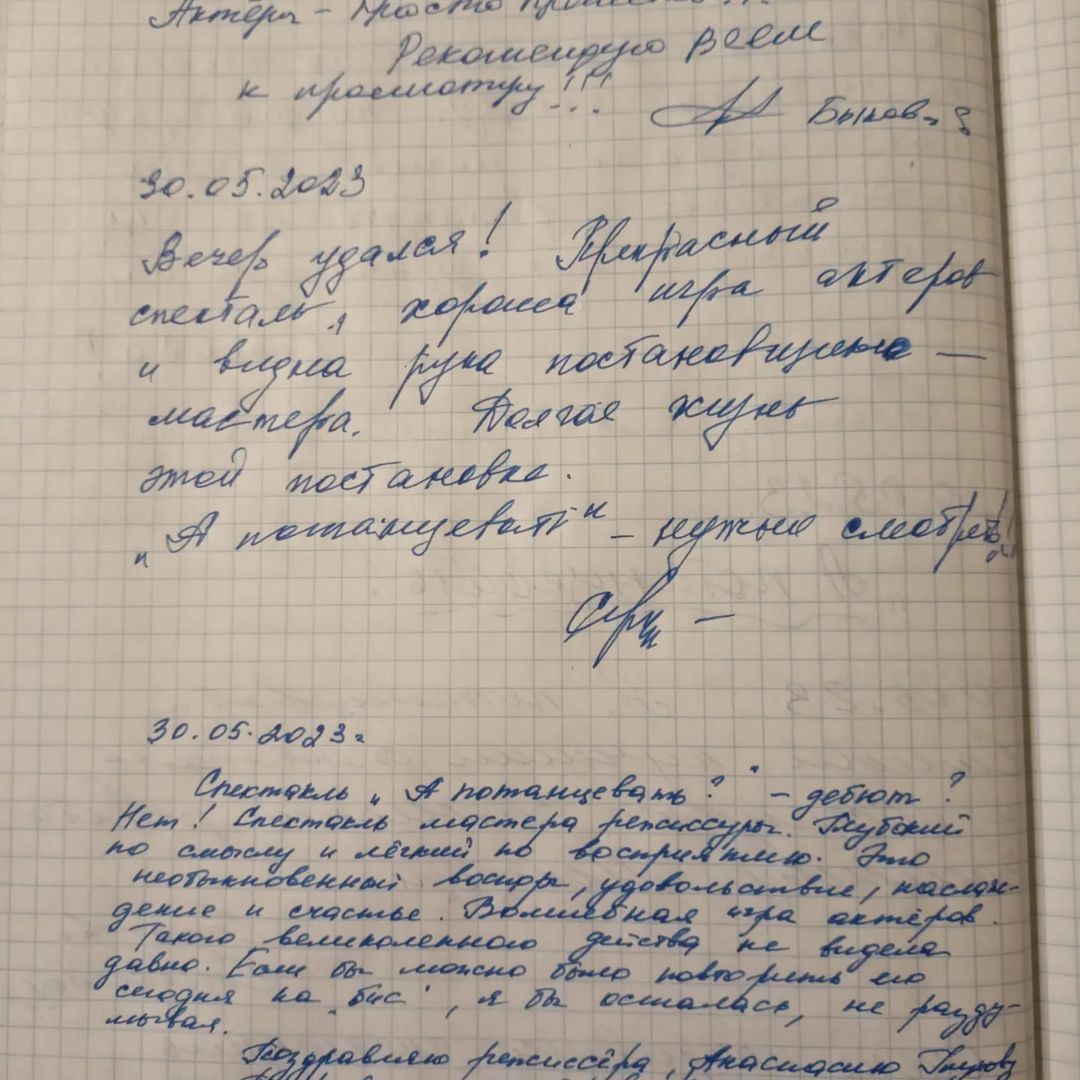 Актёры - просто
Рекомендую всем
к просмотру!!!
30.05.2023
Вечер удался! Прекрасный
спектакль, хороша игра актеров
и видна рука постановщика —
мастера. Долгая жизнь
этой постановке.
„А потанцевать" - нужно смотреть!!
30.05.2023г
Спектакль „А потанцевать?" - дебют?
Нет! Спектакль мастера режиссуры. Глубокий
по смыслу и лёгкий по восприятию. Это
необыкновенный восторг, удовольствие, наслаж-
дение и счастье. Волшебная игра актёров.
Такого великолепного действа не видела
давно. Если бы можно было повторить его
сегодня на „бис", я бы осталась, не разду-
мывая.
Поздравляю режиссёра, Анастасию